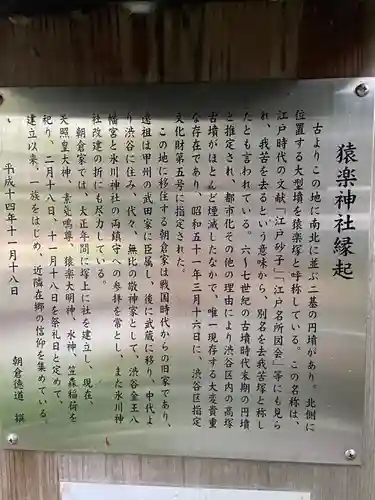 猿楽神社縁起
古よりこの地に南北に並ぶ二基の円墳があり。北側に
位置する大型墳を猿楽塚と呼称している。この名称は、
江戸時代の文献「江戸砂子」「江戸名所図会」等にも見ら
れ、我苦を去るという意味から、別名を去我苦塚と称し
たとも言われている。六〜七世紀の古墳時代末期の円墳
と推定され、都市化その他の理由により渋谷区内の高塚
古墳がほとんど煙滅したなかで、唯一現存する大変貴重
な存在であり、昭和五十一年三月十六日に、渋谷区指定
文化財第五号に指定された。
この地に移住する朝倉家は戦国時代からの旧家であり、
遠祖は甲州の武田家に臣属し、後に武蔵に移り、中代よ
り渋谷に住み、代々、無比の敬神家として、渋谷金王八
幡宮と氷川神社の両鎮守への参拝を常とし、また氷川神
社改建の折にも尽力している。
朝倉家では、大正年間に塚上に社を建立し、現在、
天照皇大神、素盞嗚尊、猿楽大明神、水神、笠森稲荷を
祀り、二月十八日、十一月十八日を祭礼日と定めて、
建立以来、一族をはじめ、近隣在郷の信仰を集めている。
平成十四年十一月十八日
朝倉徳道 撰